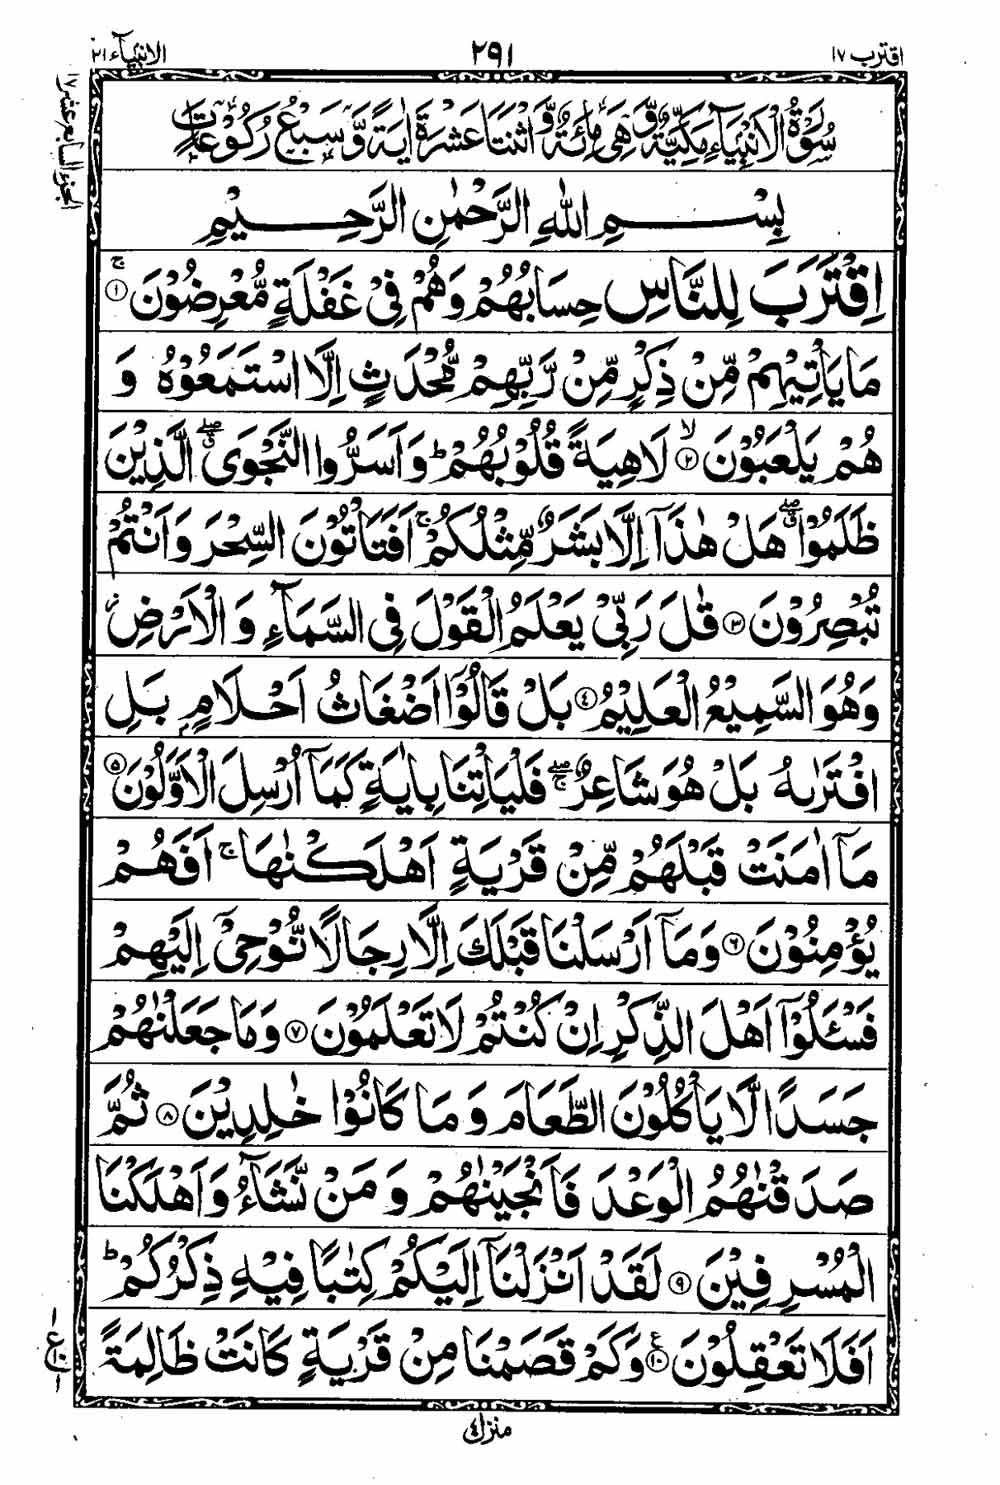 اقترب ١٧
٢٩١
الانبیآء ٢١
سُوْرَةُ الْاَنْبِيَآءِ مَكِّيَّةٌ وَّهِيَ مِائَةٌ وَّاثْنَتَا عَشْرَةَ اٰيَةً وَّسَبْعُ رُكُوْعَاتٍ
بِسْمِ اللّٰهِ الرَّحْمٰنِ الرَّحِيْمِ
اِقْتَرَبَ لِلنَّاسِ حِسَابُهُمْ وَهُمْ فِيْ غَفْلَةٍ مُّعْرِضُوْنَ ۚ‏﴿١﴾
مَا يَاْتِيْهِمْ مِّنْ ذِكْرٍ مِّنْ رَّبِّهِمْ مُّحْدَثٍ اِلَّا اسْتَمَعُوْهُ وَ
هُمْ يَلْعَبُوْنَ ۙ﴿٢﴾ لَاهِيَةً قُلُوْبُهُمْ ؕ وَاَسَرُّوا النَّجْوَى ۖۗ الَّذِيْنَ
ظَلَمُوْا ۖۗ هَلْ هٰذَآ اِلَّا بَشَرٌ مِّثْلُكُمْ ۚ اَفَتَاْتُوْنَ السِّحْرَ وَاَنْتُمْ
تُبْصِرُوْنَ ﴿٣﴾ قٰلَ رَبِّيْ يَعْلَمُ الْقَوْلَ فِي السَّمَآءِ وَالْاَرْضِ ؗ
وَهُوَ السَّمِيْعُ الْعَلِيْمُ ﴿٤﴾ بَلْ قَالُوْٓا اَضْغَاثُ اَحْلَامٍۭ بَلِ
افْتَرٰىهُ بَلْ هُوَ شَاعِرٌ ۖۚ فَلْيَاْتِنَا بِاٰيَةٍ كَمَآ اُرْسِلَ الْاَوَّلُوْنَ ﴿٥﴾
مَآ اٰمَنَتْ قَبْلَهُمْ مِّنْ قَرْيَةٍ اَهْلَكْنٰهَا ۚ اَفَهُمْ
يُؤْمِنُوْنَ ﴿٦﴾ وَمَآ اَرْسَلْنَا قَبْلَكَ اِلَّا رِجَالًا نُّوْحِيْٓ اِلَيْهِمْ
فَسْـَٔلُوْٓا اَهْلَ الذِّكْرِ اِنْ كُنْتُمْ لَا تَعْلَمُوْنَ ﴿٧﴾ وَمَا جَعَلْنٰهُمْ
جَسَدًا لَّا يَاْكُلُوْنَ الطَّعَامَ وَمَا كَانُوْا خٰلِدِيْنَ ﴿٨﴾ ثُمَّ
صَدَقْنٰهُمُ الْوَعْدَ فَاَنْجَيْنٰهُمْ وَمَنْ نَّشَآءُ وَاَهْلَكْنَا
الْمُسْرِفِيْنَ ﴿٩﴾ لَقَدْ اَنْزَلْنَآ اِلَيْكُمْ كِتٰبًا فِيْهِ ذِكْرُكُمْ ؕ
اَفَلَا تَعْقِلُوْنَ ﴿١٠﴾ وَكَمْ قَصَمْنَا مِنْ قَرْيَةٍ كَانَتْ ظَالِمَةً
منزل ٤
الجزء السابع عشر ١٧